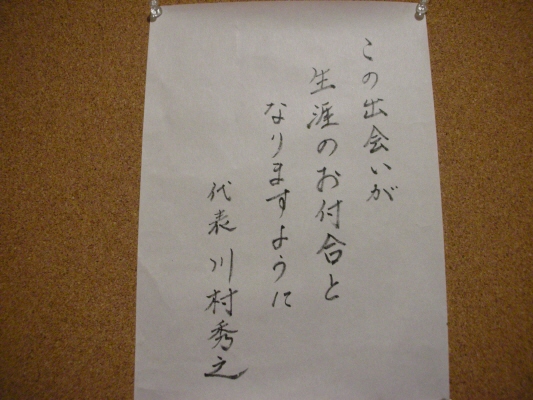 この出会いが
生涯のお付合と
なりますように
代表 川村秀之